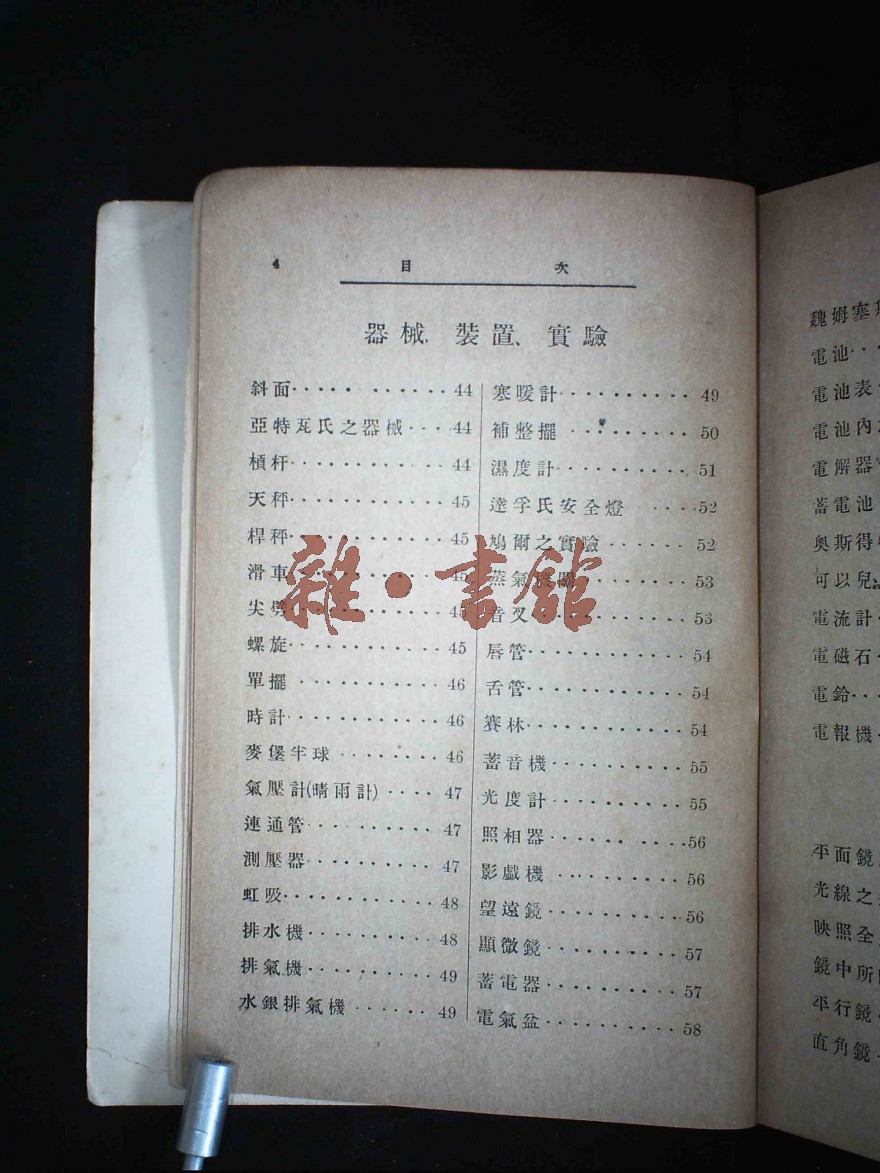 4 目 次
器械、裝置、實驗
斜面·········· 44
亞特瓦氏之器械···· 44
槓杆·········· 44
天秤·········· 45
桿秤·········· 45
滑車·········· 45
尖劈·········· 45
螺旋·········· 45
單擺·········· 46
時計·········· 46
麥堡半球······ 46
氣壓計(晴雨計)···· 47
連通管········· 47
測壓器········· 47
虹吸·········· 48
排水機········· 48
排氣機········· 49
水銀排氣機······ 49
寒暖計·········· 49
補整擺········· 50
濕度計·········· 51
達孚氏安全燈····· 52
鳩爾之實驗······ 52
蒸氣機關······· 53
音叉·········· 53
唇管··········· 54
舌管··········· 54
賽林··········· 54
蓄音機········· 55
光度計········· 55
照相器········· 56
影戲機········· 56
望遠鏡·········· 56
顯微鏡·········· 57
蓄電器·········· 57
電氣盆·········· 58
雜·書館
魏姆塞
電池··
電池表
電池內
電解器
蓄電池
奧斯得
可以兒
電流計·
電磁石·
電鈴··
電報機·
平面鏡
光線之
映照全
鏡中所
平行鏡
直角鏡